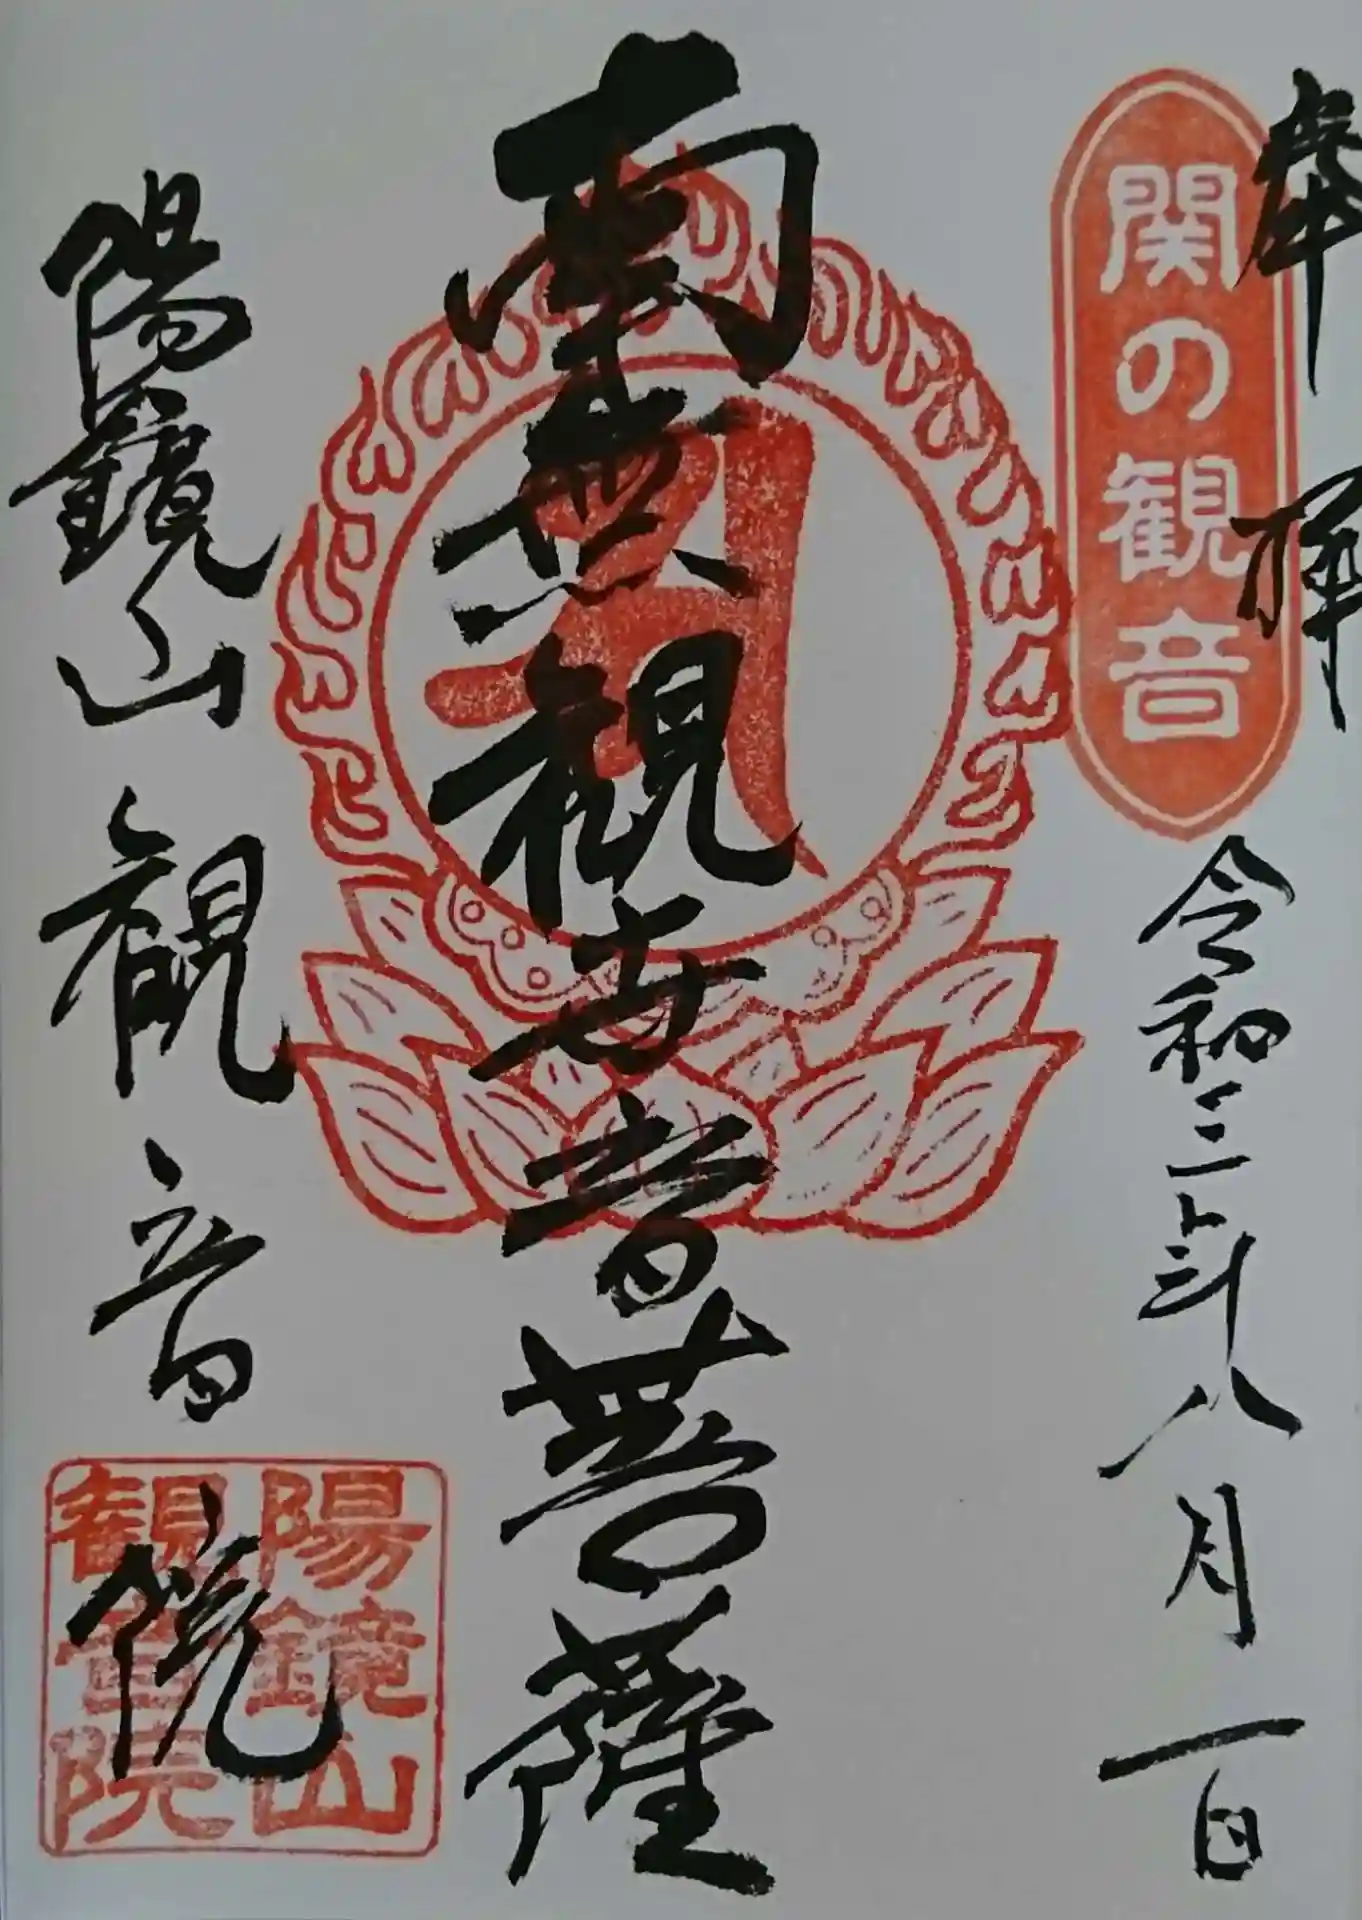 奉拝
関の観音
令和二年八月一日
南無観世音菩薩
陽鏡山
観音院
陽鏡山
観音院